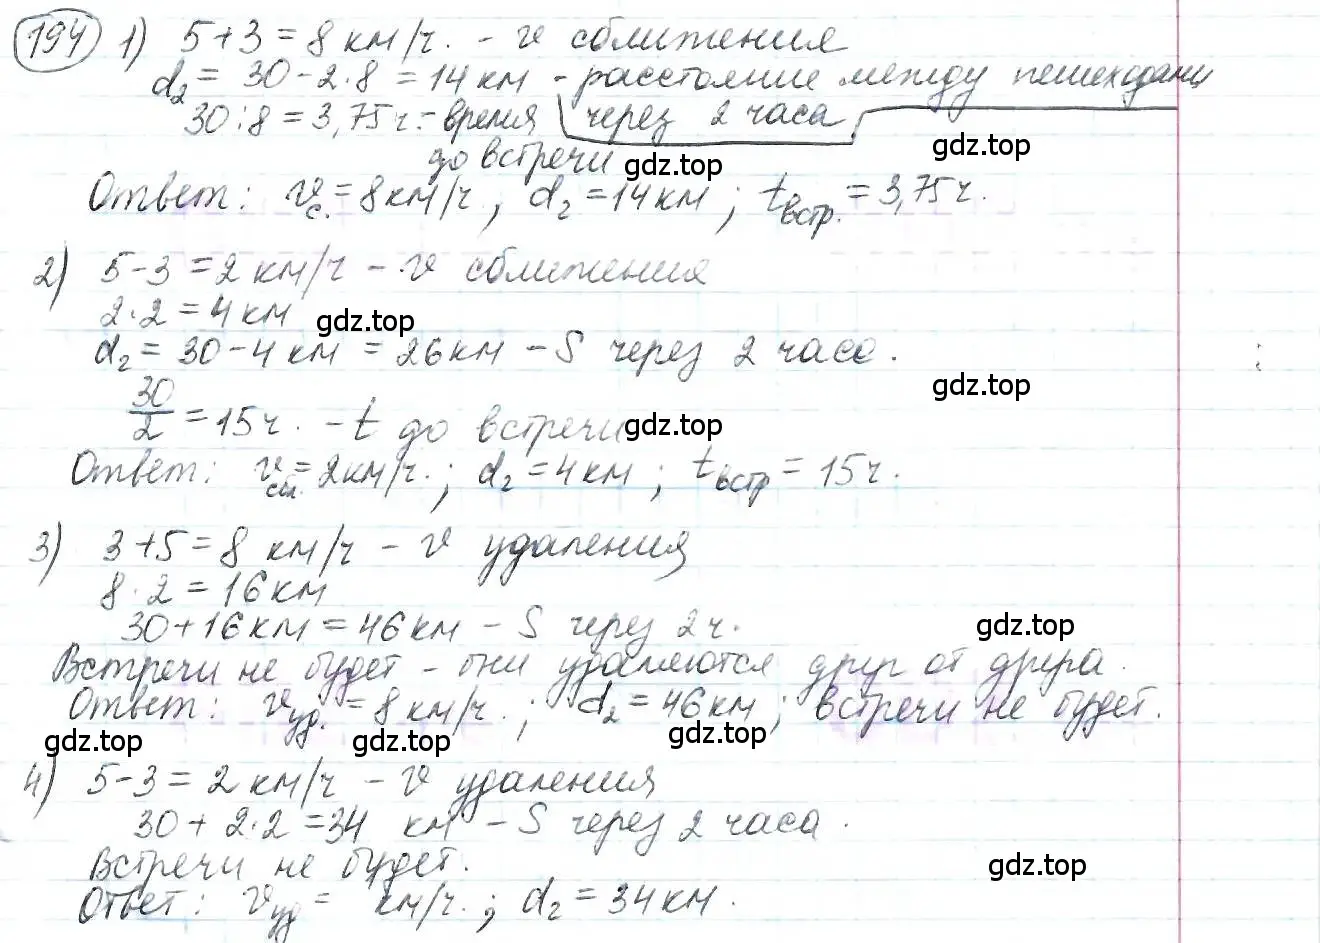 194 1) 5+3=8 км/ч. - v сближения
d₂ = 30-2·8 = 14 км - расстояние между пешеходами
30:8=3,75 ч. - время через 2 часа
gdz.top
до встречи gdz.top
Ответ: vс.=8км/ч, d₂=14км; tвстр.=3,75ч.
2) 5-3=2 км/ч - v сближения
2·2=4 км gdz.top
d₂=30-4 км=26км - S через 2 часа.
gdz.top
30/2=15ч. - t до встречи gdz.top
Ответ: vсбл.=2км/ч.; d₂=4км; tвстр=15ч.
3) 3+5=8 км/ч - v удаления
8·2=16км
30+16км=46км - S через 2ч. gdz.top
Встречи не будет - они удаляются друг от друга.
Ответ: vуд.=8км/ч.; d₂=46км; встречи не будет.
gdz.top gdz.top gdz.top
4) 5-3=2 км/ч - v удаления
30+2·2=34 км - S через 2 часа.
Встречи не будет. gdz.top
Ответ: vуд= км/ч.; d₂=34км.